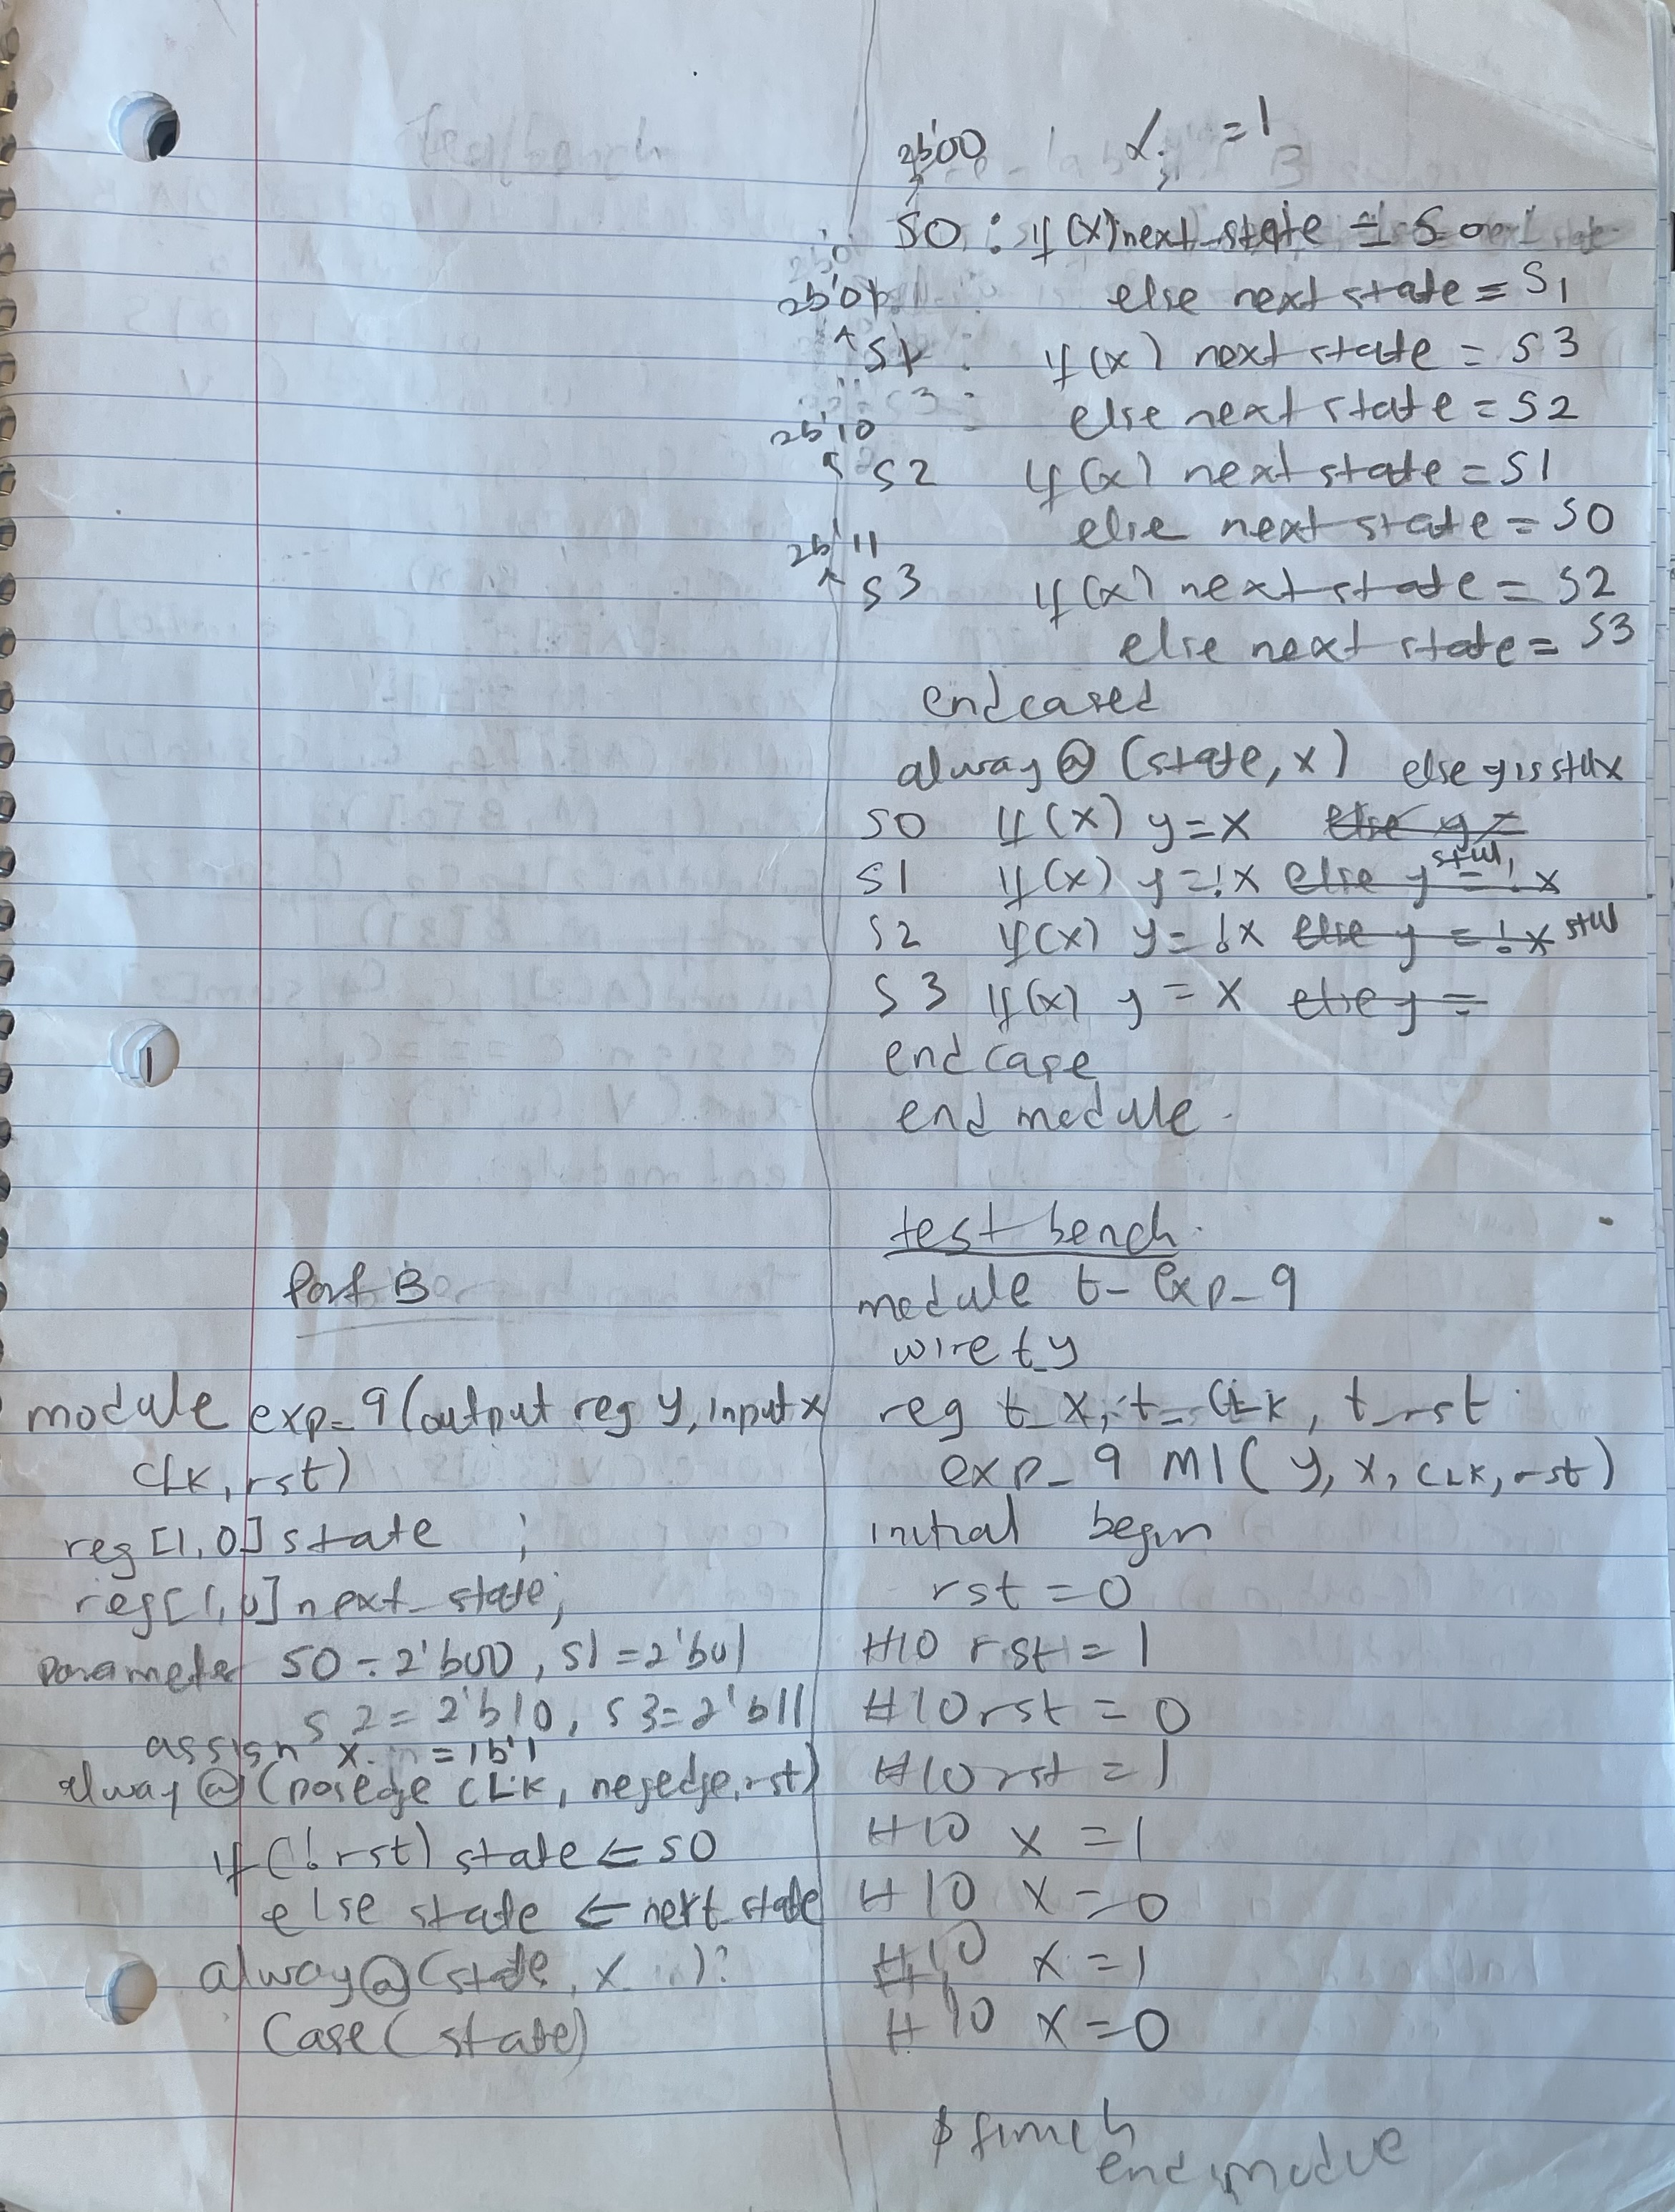 Part B
module exp_9(output reg y, input x
CLK, rst)
reg [1,0] state ;
reg[1,0] next_state;
parameter S0 = 2'b00, S1 = 2'b01
S2 = 2'b10, S3 = 2'b11
assign x = 1b'1
alway @ (posedge CLK, negedge rst)
if (!rst) state <= S0
else state <= next_state
alway @ (state, x ):
Case (state)
2b'00 x = 1
S0 : if (x) next_state =
else next state = S1
2b'01
S1 : if (x) next state = S3
else next state = S2
2b'10
S2 if (x) next state = S1
else next state = S0
2b'11
S3 if (x) next state = S2
else next state = S3
endcased
alway @ (state, x) else y is still x
S0 if (x) y = x else y =
S1 if (x) y = !x else y = !x still
S2 if (x) y = !x else y = !x still
S3 if (x) y = x else y =
end case
end module
test bench
module t_exp_9
wire t_y
reg t_x, t_CLK, t_rst
exp_9 M1( y, x, CLK, rst)
initial begin
rst = 0
#10 rst = 1
#10 rst = 0
#10 rst = 1
#10 x = 1
#10 x = 0
#10 x = 1
#10 x = 0
$finich
end module